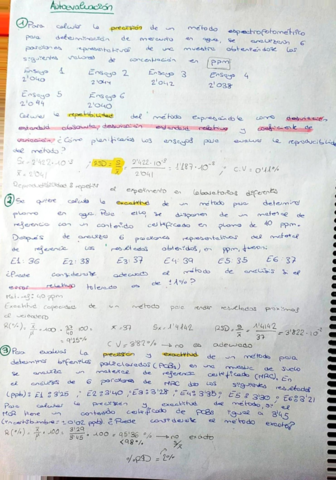 Autoevaluación
① Para calcular la precisión de un método espectrofotométrico
para determinación de mercurio en agua, se analizaron 6
porciones representativas de una muestra obteniéndose los
siguientes valores de concentración en ppm
Ensayo 1 Ensayo 2 Ensayo 3 Ensayo 4
2'040 2'044 2'042 2'038
Ensayo 5 Ensayo 6
2'044 2'040
Calcular la repetibilidad del método expresándola como desviación
estándar absoluta, desviación estándar relativa y coeficiente de
variación. ¿Cómo planificarías los ensayos para evaluar la reproducibilidad
del método?
RSD = S/x̄
2'041 C.V = 0'11%
el experimento en laboratorios diferentes
② Se quiere calcular la exactitud de un método para determinar
plomo en agua. Para ello se disponen de un material de
referencia con un contenido certificado en plomo de 40 ppm.
Después de analizar 6 porciones representativas del material
de referencia los resultados obtenidos, en ppm, fueron:
E1: 36 E2: 38 E3: 37 E4: 39 E5: 35 E6: 37
¿Puede considerarse adecuado el método de análisis si el
error relativo tolerado es de ±1%?
Exactitud capacidad de un método para dar resultados próximos al
verdadero
x̄ = 37 Sx = 1'4142 RSD = 1'4142/37 = 3'822·10⁻²
C.V = 3'82% → no es adecuado
③ Para evaluar la precisión y exactitud de un método para
determinar bifenilos policlorados (PCBs) en una muestra de suelo
se analiza un material de referencia certificado (MRC). En
el análisis de 6 porciones de MRC dio los siguientes resultados
Para calcular la precisión y exactitud del método, si el
MRC tiene un contenido certificado de PCBs igual a 3'45
¿Puede considerarse el método exacto?
R(%) = 3'29/3'45 · 100 = 95'36% → no exacto
<98%